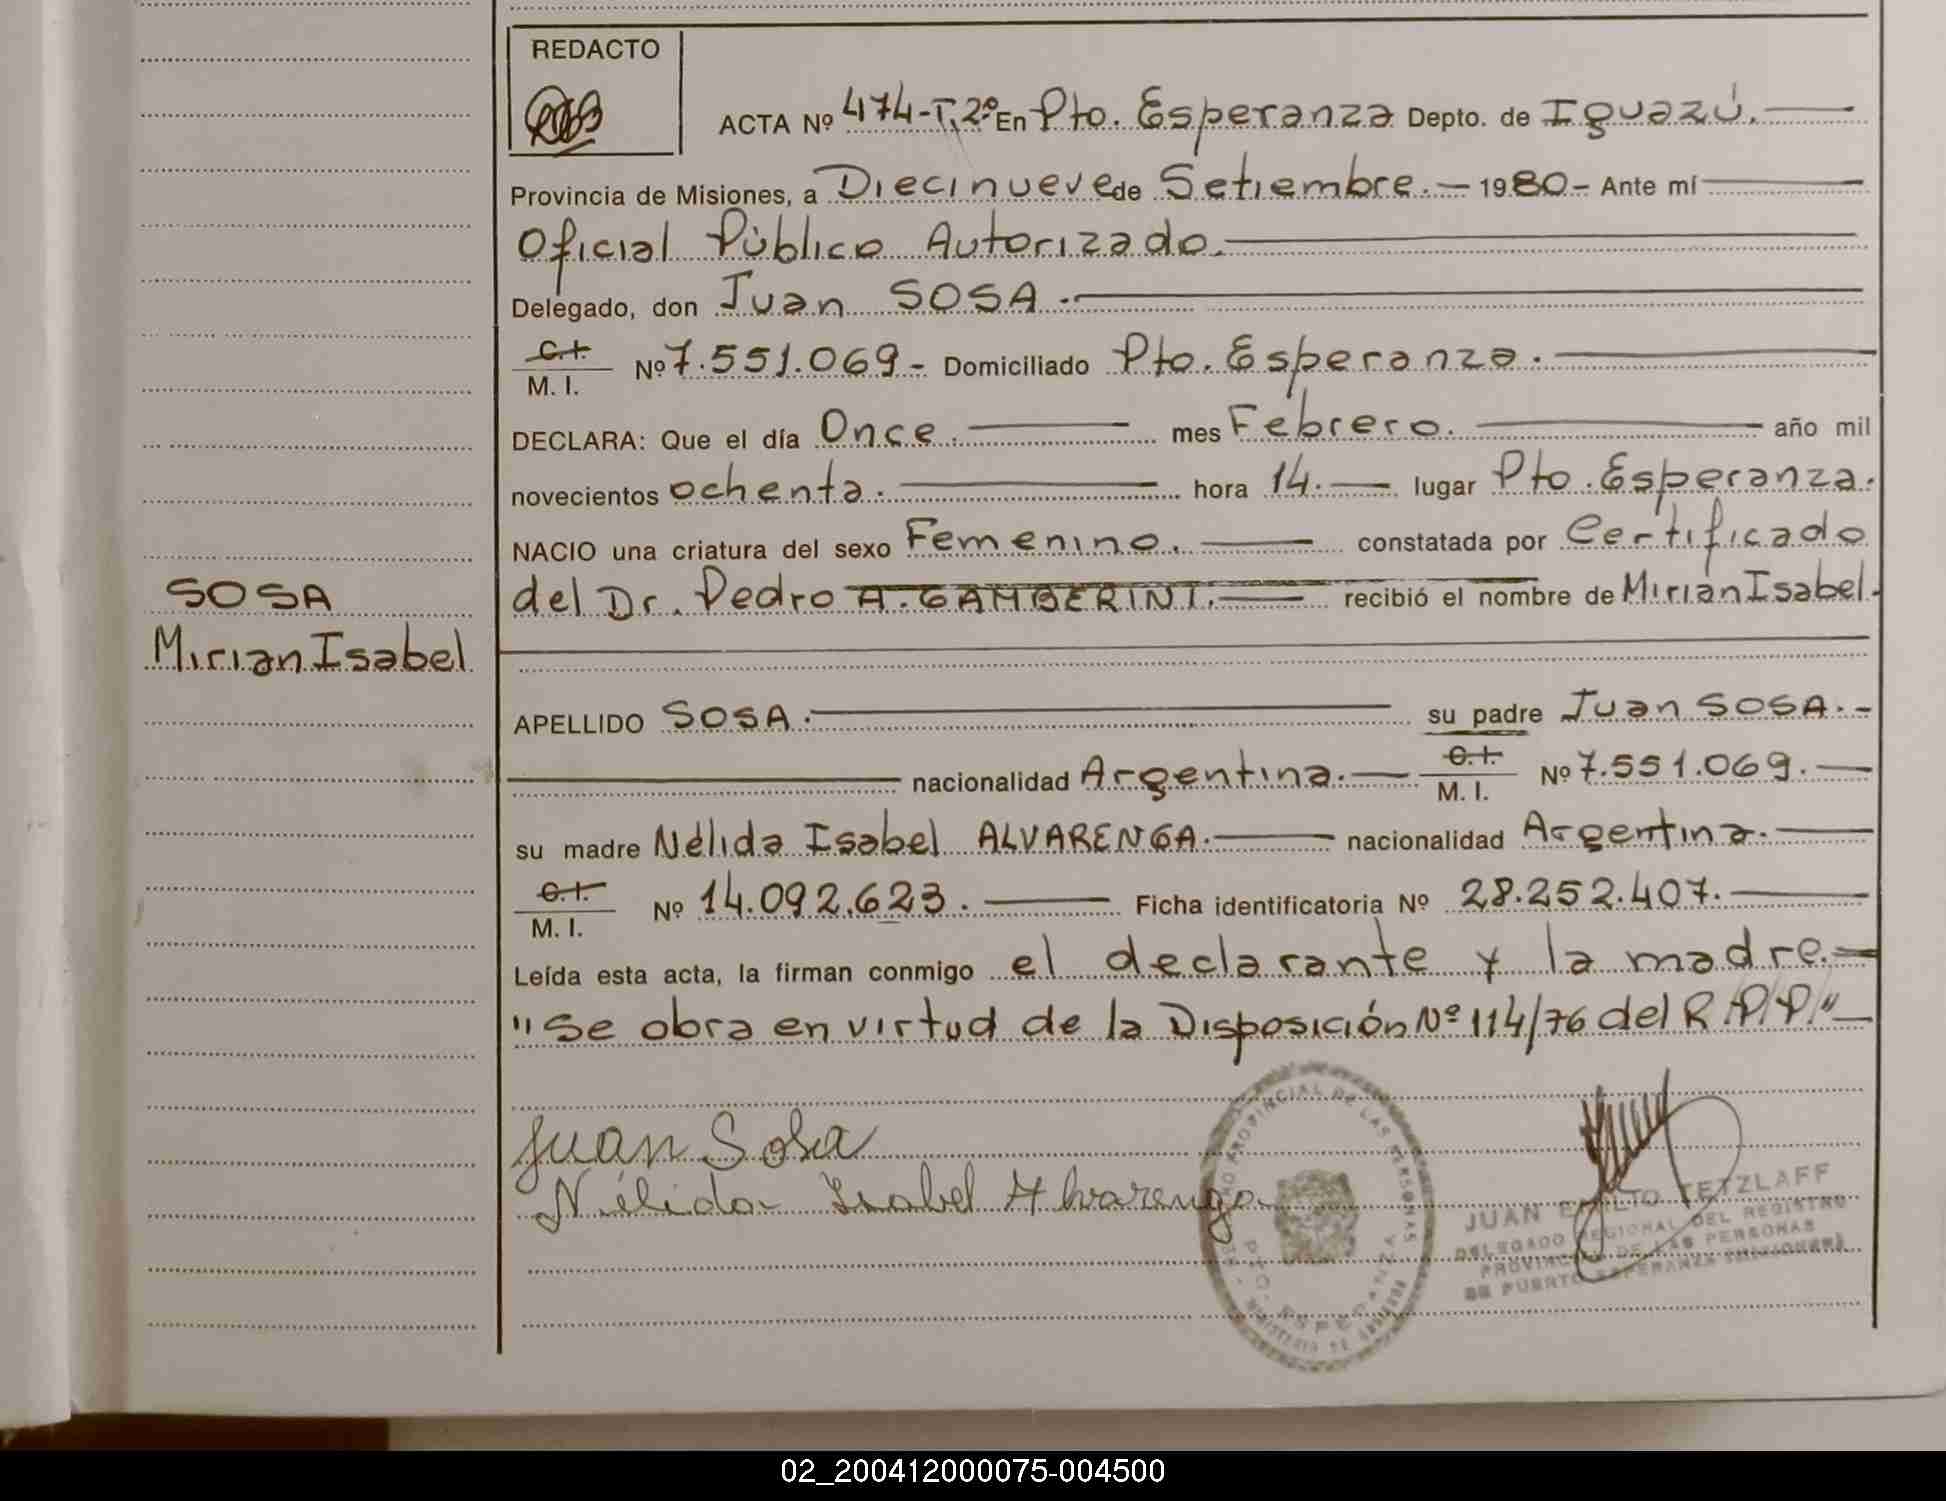 REDACTO
ACTA Nº 474-T.2º En Pto. Esperanza Depto. de Iguazú.
Provincia de Misiones, a Diecinueve de Setiembre.- 1980.- Ante mí
Oficial Público Autorizado.
Delegado, don Juan SOSA.
C.I.
M. I. Nº 7.551.069.- Domiciliado Pto. Esperanza.
DECLARA: Que el día Once. mes Febrero. año mil
novecientos ochenta. hora 14. lugar Pto. Esperanza.
NACIO una criatura del sexo Femenino. constatada por Certificado
SOSA
del Dr. Pedro A. GAMBERINI. recibió el nombre de Mirian Isabel.
Mirian Isabel
APELLIDO SOSA. su padre Juan SOSA.-
nacionalidad Argentina. C.I. M. I. Nº 7.551.069.
su madre Nélida Isabel ALVARENGA. nacionalidad Argentina.
C.I.
M. I. Nº 14.092.623. Ficha identificatoria Nº 28.252.407.
Leída esta acta, la firman conmigo el declarante y la madre.
"Se obra en virtud de la Disposición Nº 114/76 del R.P.P."
Juan Sosa
Nélida Isabel Alvarenga
PROVINCIAL DE LAS PERSONAS
JUAN EMILIO TETZLAFF
DELEGADO REGIONAL DEL REGISTRO
PROVINCIAL DE LAS PERSONAS
DE PUERTO ESPERANZA (MISIONES)
02_200412000075-004500